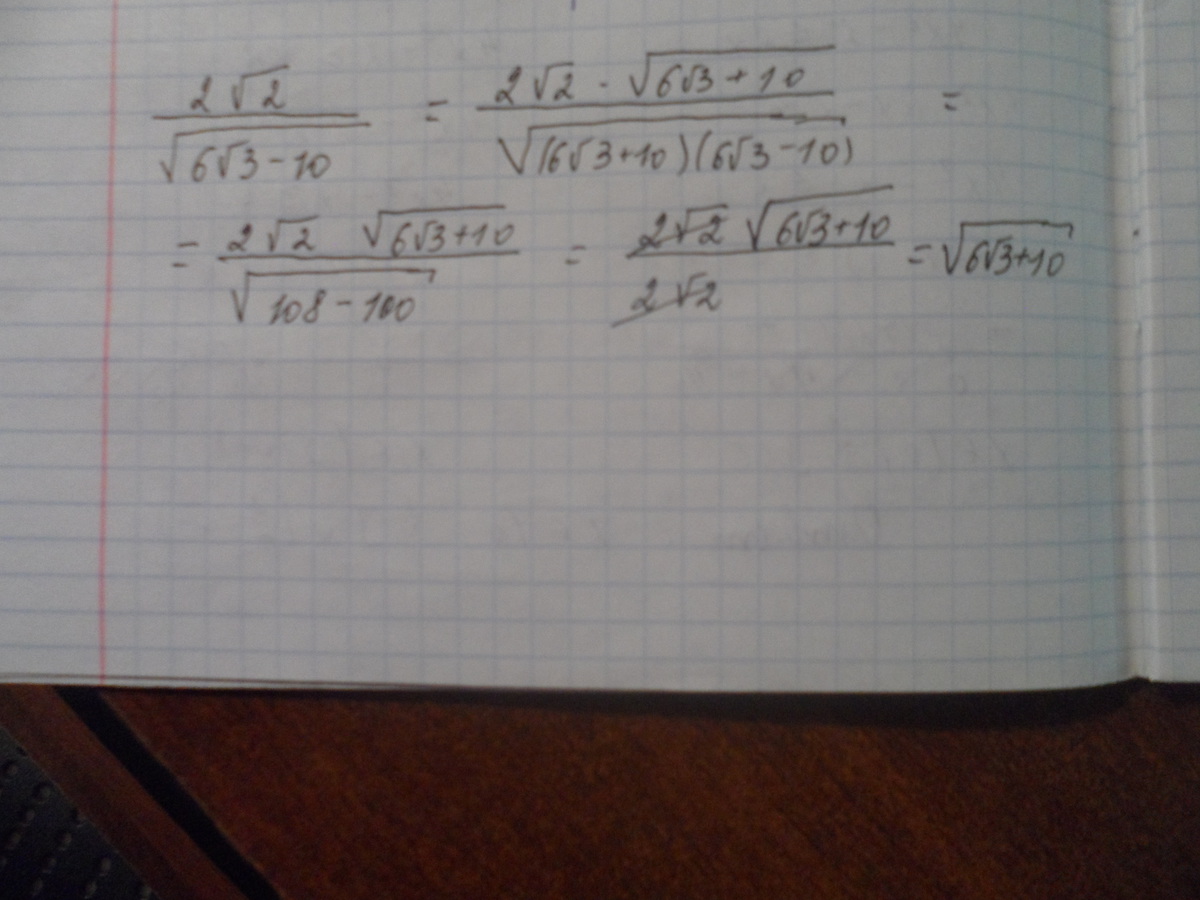 2√2 / √(6√3-10) = 2√2 · √(6√3+10) / √((6√3+10)(6√3-10)) =
= 2√2 √(6√3+10) / √(108-100) = 2√2 √(6√3+10) / 2√2 = √(6√3+10)